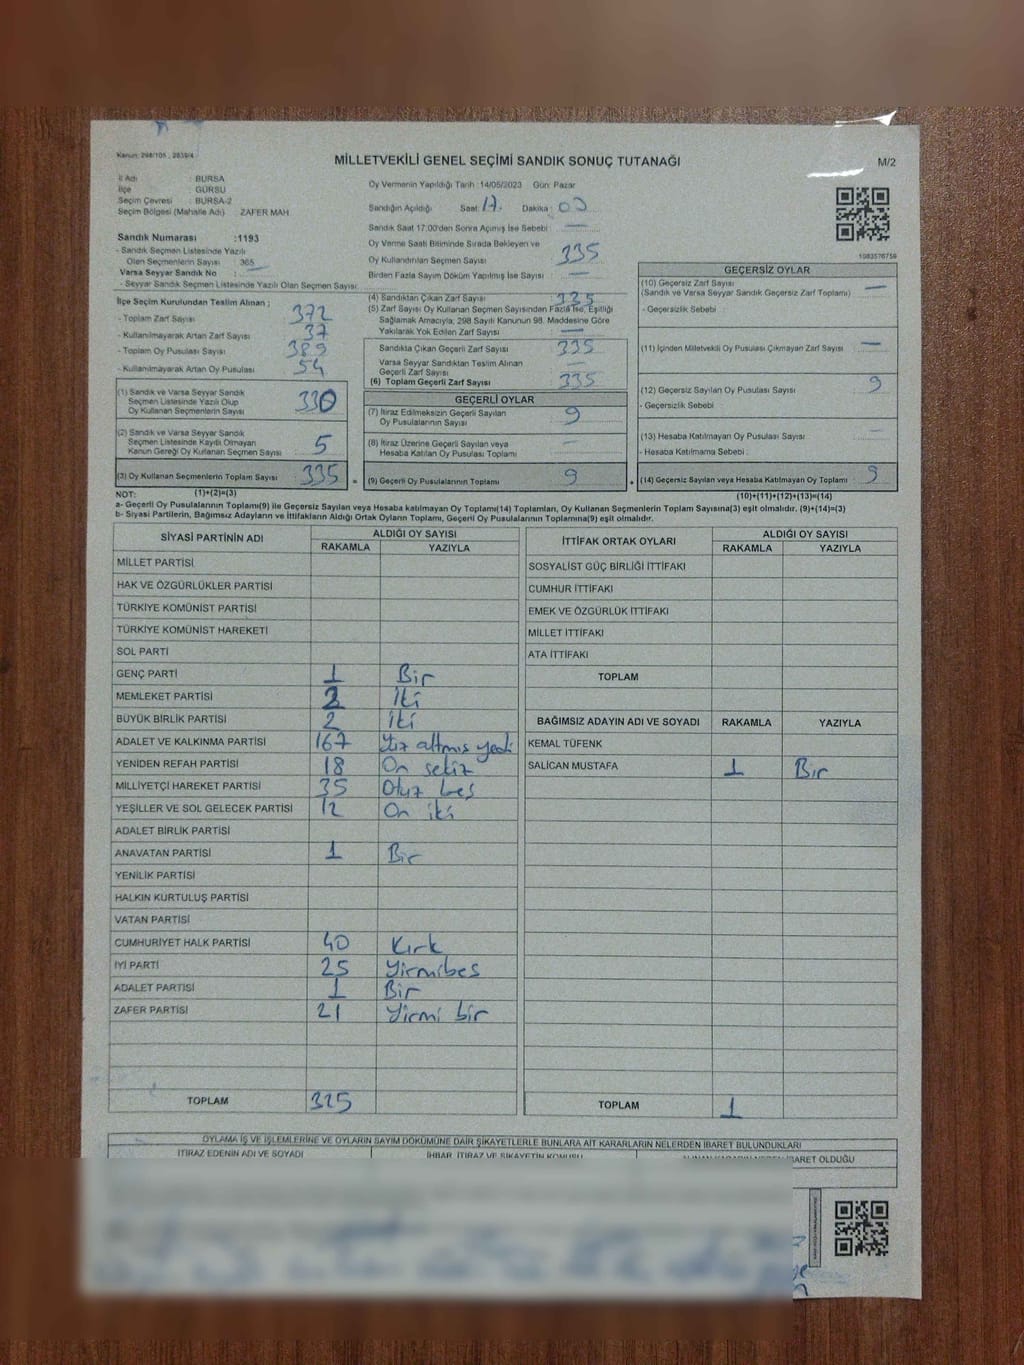 Kanun: 298/105 , 2839/4
MİLLETVEKİLİ GENEL SEÇİMİ SANDIK SONUÇ TUTANAĞI
M/2
İl Adı : BURSA
İlçe : GÜRSU
Seçim Çevresi : BURSA-2
Seçim Bölgesi (Mahalle Adı) ZAFER MAH.
Sandık Numarası :1193
- Sandık Seçmen Listesinde Yazılı
Olan Seçmenlerin Sayısı 365
Varsa Seyyar Sandık No :
- Seyyar Sandık Seçmen Listesinde Yazılı Olan Seçmen Sayısı
İlçe Seçim Kurulundan Teslim Alınan ;
- Toplam Zarf Sayısı 372
- Kullanılmayarak Artan Zarf Sayısı 37
- Toplam Oy Pusulası Sayısı 389
- Kullanılmayarak Artan Oy Pusulası 54
(1) Sandık ve Varsa Seyyar Sandık
Seçmen Listesinde Yazılı Olup
Oy Kullanan Seçmenlerin Sayısı 330
(2) Sandık ve Varsa Seyyar Sandık
Seçmen Listesinde Kayıtlı Olmayan
Kanun Gereği Oy Kullanan Seçmen Sayısı 5
(3) Oy Kullanan Seçmenlerin Toplam Sayısı 335
Oy Vermenin Yapıldığı Tarih :14/05/2023 Gün: Pazar
Sandığın Açıldığı Saat: 17. Dakika : 00
Sandık Saat 17:00'den Sonra Açılmış İse Sebebi : —
Oy Verme Saati Bitiminde Sırada Bekleyen ve
Oy Kullandırılan Seçmen Sayısı 335
Birden Fazla Sayım Döküm Yapılmış İse Sayısı : —
(4) Sandıktan Çıkan Zarf Sayısı : 335
(5) Zarf Sayısı Oy Kullanan Seçmen Sayısından Fazla İse, Eşitliği
Sağlamak Amacıyla, 298 Sayılı Kanunun 98. Maddesine Göre
Yakılarak Yok Edilen Zarf Sayısı —
Sandıkta Çıkan Geçerli Zarf Sayısı 335
Varsa Seyyar Sandıktan Teslim Alınan
Geçerli Zarf Sayısı —
(6) Toplam Geçerli Zarf Sayısı 335
GEÇERLİ OYLAR
(7) İtiraz Edilmeksizin Geçerli Sayılan
Oy Pusulalarının Sayısı 9
(8) İtiraz Üzerine Geçerli Sayılan veya
Hesaba Katılan Oy Pusulası Toplamı —
(9) Geçerli Oy Pusulalarının Toplamı 9
1083576759
GEÇERSİZ OYLAR
(10) Geçersiz Zarf Sayısı
(Sandık ve Varsa Seyyar Sandık Geçersiz Zarf Toplamı) —
- Geçersizlik Sebebi
(11) İçinden Milletvekili Oy Pusulası Çıkmayan Zarf Sayısı —
(12) Geçersiz Sayılan Oy Pusulası Sayısı 9
- Geçersizlik Sebebi
(13) Hesaba Katılmayan Oy Pusulası Sayısı —
- Hesaba Katılmama Sebebi :
(14) Geçersiz Sayılan veya Hesaba Katılmayan Oy Toplamı 9
NOT: (1)+(2)=(3) (10)+(11)+(12)+(13)=(14)
a- Geçerli Oy Pusulalarının Toplamı(9) ile Geçersiz Sayılan veya Hesaba katılmayan Oy Toplamı(14) Toplamları, Oy Kullanan Seçmenlerin Toplam Sayısına(3) eşit olmalıdır. (9)+(14)=(3)
b- Siyasi Partilerin, Bağımsız Adayların ve İttifakların Aldığı Ortak Oyların Toplamı, Geçerli Oy Pusulalarının Toplamına(9) eşit olmalıdır.
SİYASİ PARTİNİN ADI ALDIĞI OY SAYISI
RAKAMLA YAZIYLA
MİLLET PARTİSİ
HAK VE ÖZGÜRLÜKLER PARTİSİ
TÜRKİYE KOMÜNİST PARTİSİ
TÜRKİYE KOMÜNİST HAREKETİ
SOL PARTİ
GENÇ PARTİ 1 Bir
MEMLEKET PARTİSİ 2 İki
BÜYÜK BİRLİK PARTİSİ 2 iki
ADALET VE KALKINMA PARTİSİ 167 Yüz altmıs yedi
YENİDEN REFAH PARTİSİ 18 On sekiz
MİLLİYETÇİ HAREKET PARTİSİ 35 Otuz beş
YEŞİLLER VE SOL GELECEK PARTİSİ 12 On iki
ADALET BİRLİK PARTİSİ
ANAVATAN PARTİSİ 1 Bir
YENİLİK PARTİSİ
HALKIN KURTULUŞ PARTİSİ
VATAN PARTİSİ
CUMHURİYET HALK PARTİSİ 40 Kırk
İYİ PARTİ 25 Yirmibes
ADALET PARTİSİ 1 Bir
ZAFER PARTİSİ 21 Yirmi bir
TOPLAM 325
İTTİFAK ORTAK OYLARI ALDIĞI OY SAYISI
RAKAMLA YAZIYLA
SOSYALİST GÜÇ BİRLİĞİ İTTİFAKI
CUMHUR İTTİFAKI
EMEK VE ÖZGÜRLÜK İTTİFAKI
MİLLET İTTİFAKI
ATA İTTİFAKI
TOPLAM
BAĞIMSIZ ADAYIN ADI VE SOYADI RAKAMLA YAZIYLA
KEMAL TÜFENK
SALİCAN MUSTAFA 1 Bir
TOPLAM 1
OYLAMA İŞ VE İŞLEMLERİNE VE OYLARIN SAYIM DÖKÜMÜNE DAİR ŞİKAYETLERLE BUNLARA AİT KARARLARIN NELERDEN İBARET BULUNDUKLARI
İTİRAZ EDENİN ADI VE SOYADI İHBAR, İTİRAZ VE ŞİKAYETİN KONUSU İBARET OLDUĞU